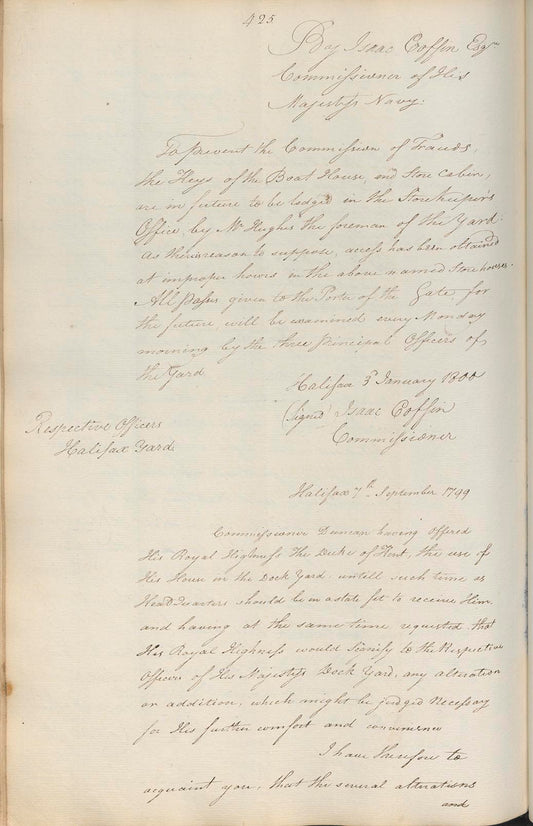 425
By Isaac Coffin Esqre
Commissioner of His
Majesty's Navy.
To prevent the Commission of Frauds,
the Keys of the Boat House, and Store Cabin,
are in future to be lodged in the Storekeeper's
Office, by Mr Hughes the foreman of the Yard
As there is reason to suppose, access has been obtained
at improper hours in the above named Storehouses.
All Passes given to the Porter of the Gate, for
the future, will be examined every Monday
morning by the three principal Officers of
the Yard
Halifax 3d January 1800
(Signed) Isaac Coffin
Commissioner
Respective Officers
Halifax Yard.
Halifax 7th September 1799
Commissioner Duncan having offered
His Royal Highness The Duke of Kent, the use of
His House in the Dock Yard untill such time as
Head Quarters should be in a state fit to receive Him,
and having at the same time requested that
His Royal Highness would signify to the Respective
Officers of His Majesty's Dock Yard, any alteration
or addition, which might be judged Necessary
for His further comfort and convenience
I have therefore to
acquaint you, that the several alterations
and